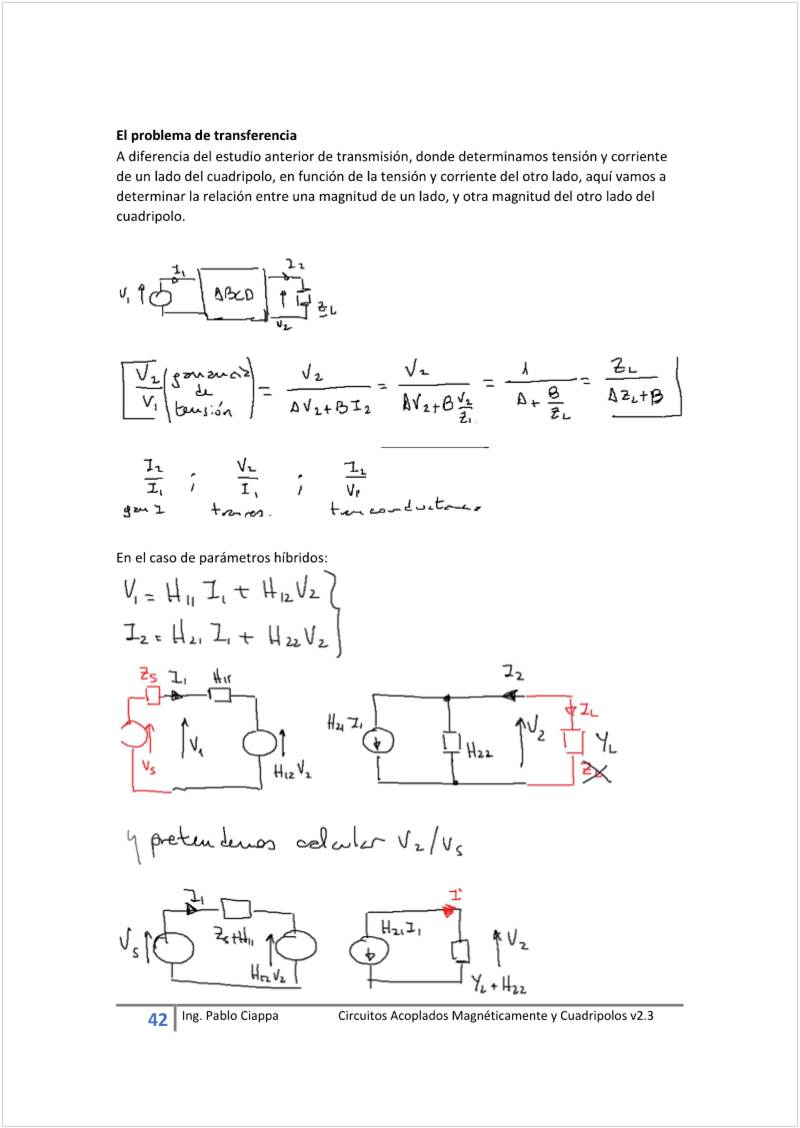 El problema de transferencia
A diferencia del estudio anterior de transmisión, donde determinamos tensión y corriente
de un lado del cuadripolo, en función de la tensión y corriente del otro lado, aquí vamos a
determinar la relación entre una magnitud de un lado, y otra magnitud del otro lado del
cuadripolo.
V₁ I₁ ABCD I₂ V₂ Z_L
V₂/V₁ (ganancia de tensión) = V₂/(AV₂+BI₂) = V₂/(AV₂+B V₂/Z₁) = 1/(A+B/Z_L) = Z_L/(AZ_L+B)
I₂/I₁ ; V₂/I₁ ; I₂/V₁
gan I transres. transconductancia
En el caso de parámetros híbridos:
V₁ = H₁₁ I₁ + H₁₂ V₂
I₂ = H₂₁ I₁ + H₂₂ V₂
Z_S I₁ H₁₁ I₂
V_S V₁ H₁₂ V₂ H₂₁ I₁ H₂₂ V₂ I_L Y_L
y pretendemos calcular V₂/V_S
I₁ I
V_S Z_S+H₁₁ H₁₂ V₂ H₂₁ I₁ V₂
Y_L + H₂₂
42 Ing. Pablo Ciappa Circuitos Acoplados Magnéticamente y Cuadripolos v2.3